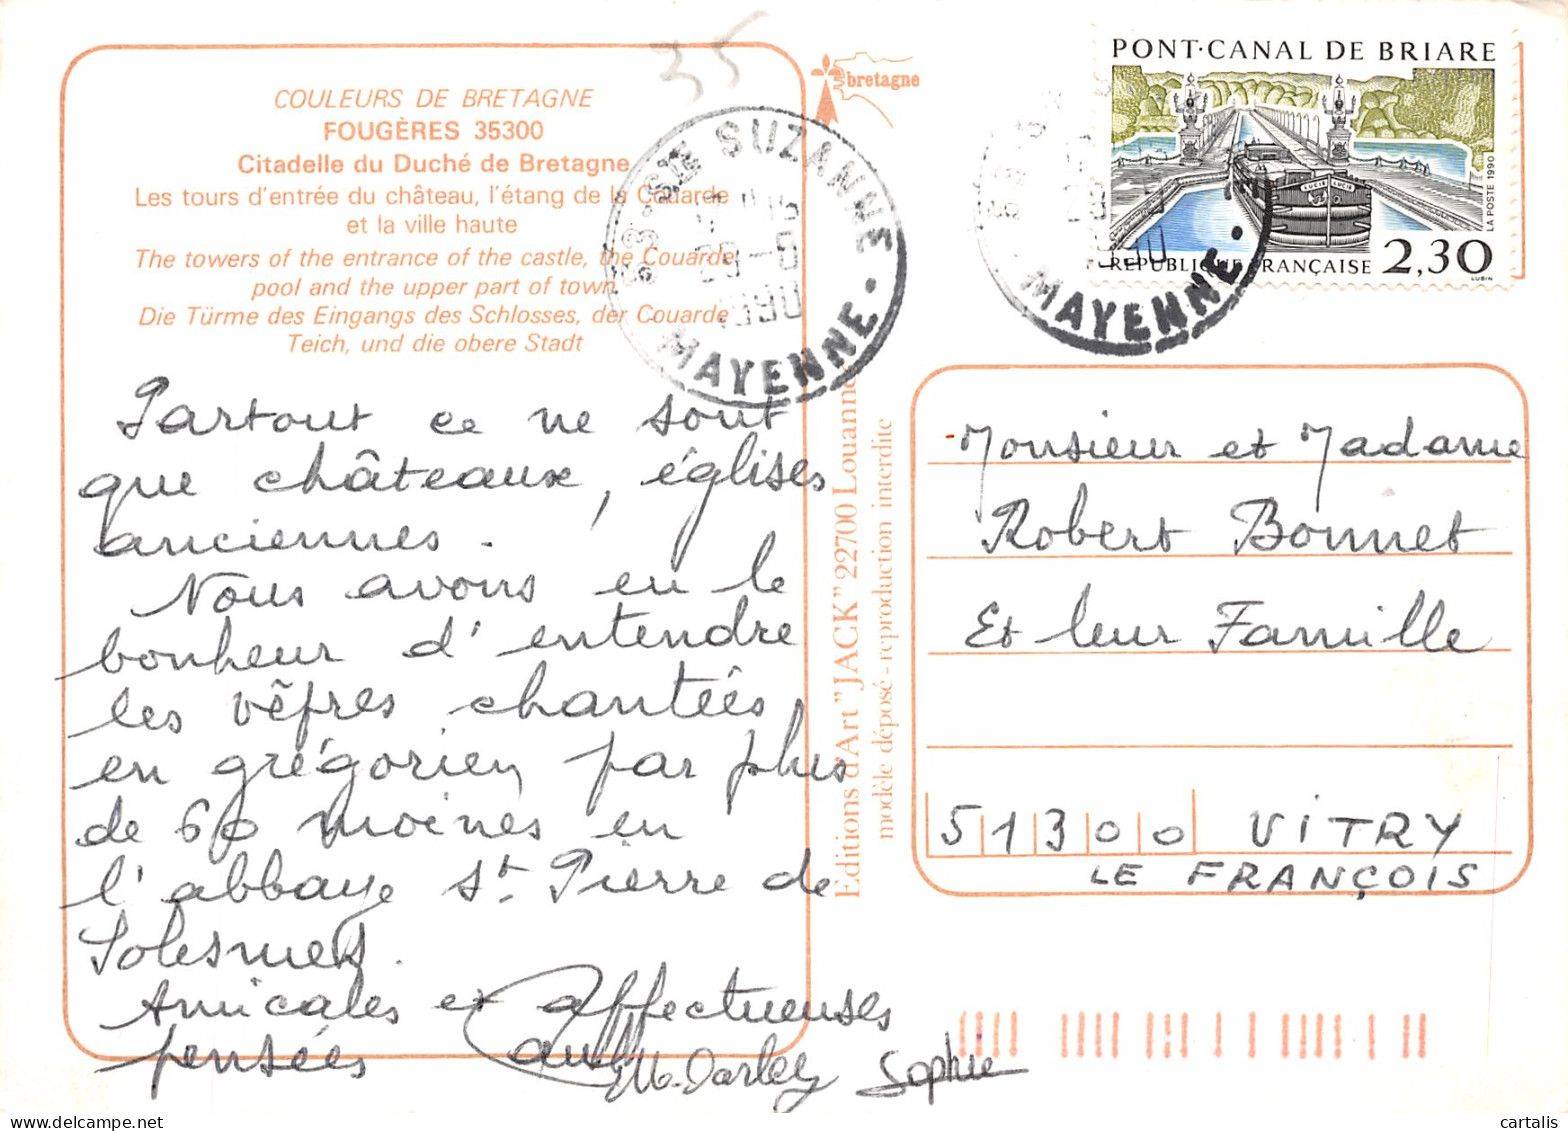 35
COULEURS DE BRETAGNE
FOUGÈRES 35300
Citadelle du Duché de Bretagne
Les tours d'entrée du château, l'étang de la Couarde
et la ville haute
The towers of the entrance of the castle, the Couarde
pool and the upper part of town
Die Türme des Eingangs des Schlosses, der Couarde
Teich, und die obere Stadt
bretagne
53 - STE SUZANNE
1990
MAYENNE
PONT-CANAL DE BRIARE
LUCIE LUCIE
LA POSTE 1990
RÉPUBLIQUE FRANÇAISE 2,30
LUBIN
MAYENNE
Partout ce ne sont
que châteaux, églises
anciennes.
Nous avons eu le
bonheur d'entendre
les vêpres chantées
en grégorien par plus
de 60 moines en
l'abbaye St Pierre de
Solesmes.
Amicales et affectueuses
pensées
Sophie
Editions d'Art "JACK" 22700 Louannec
modèle déposé - reproduction interdite
Monsieur et Madame
Robert Bonnet
Et leur Famille
51300 VITRY
LE FRANÇOIS
cartalis